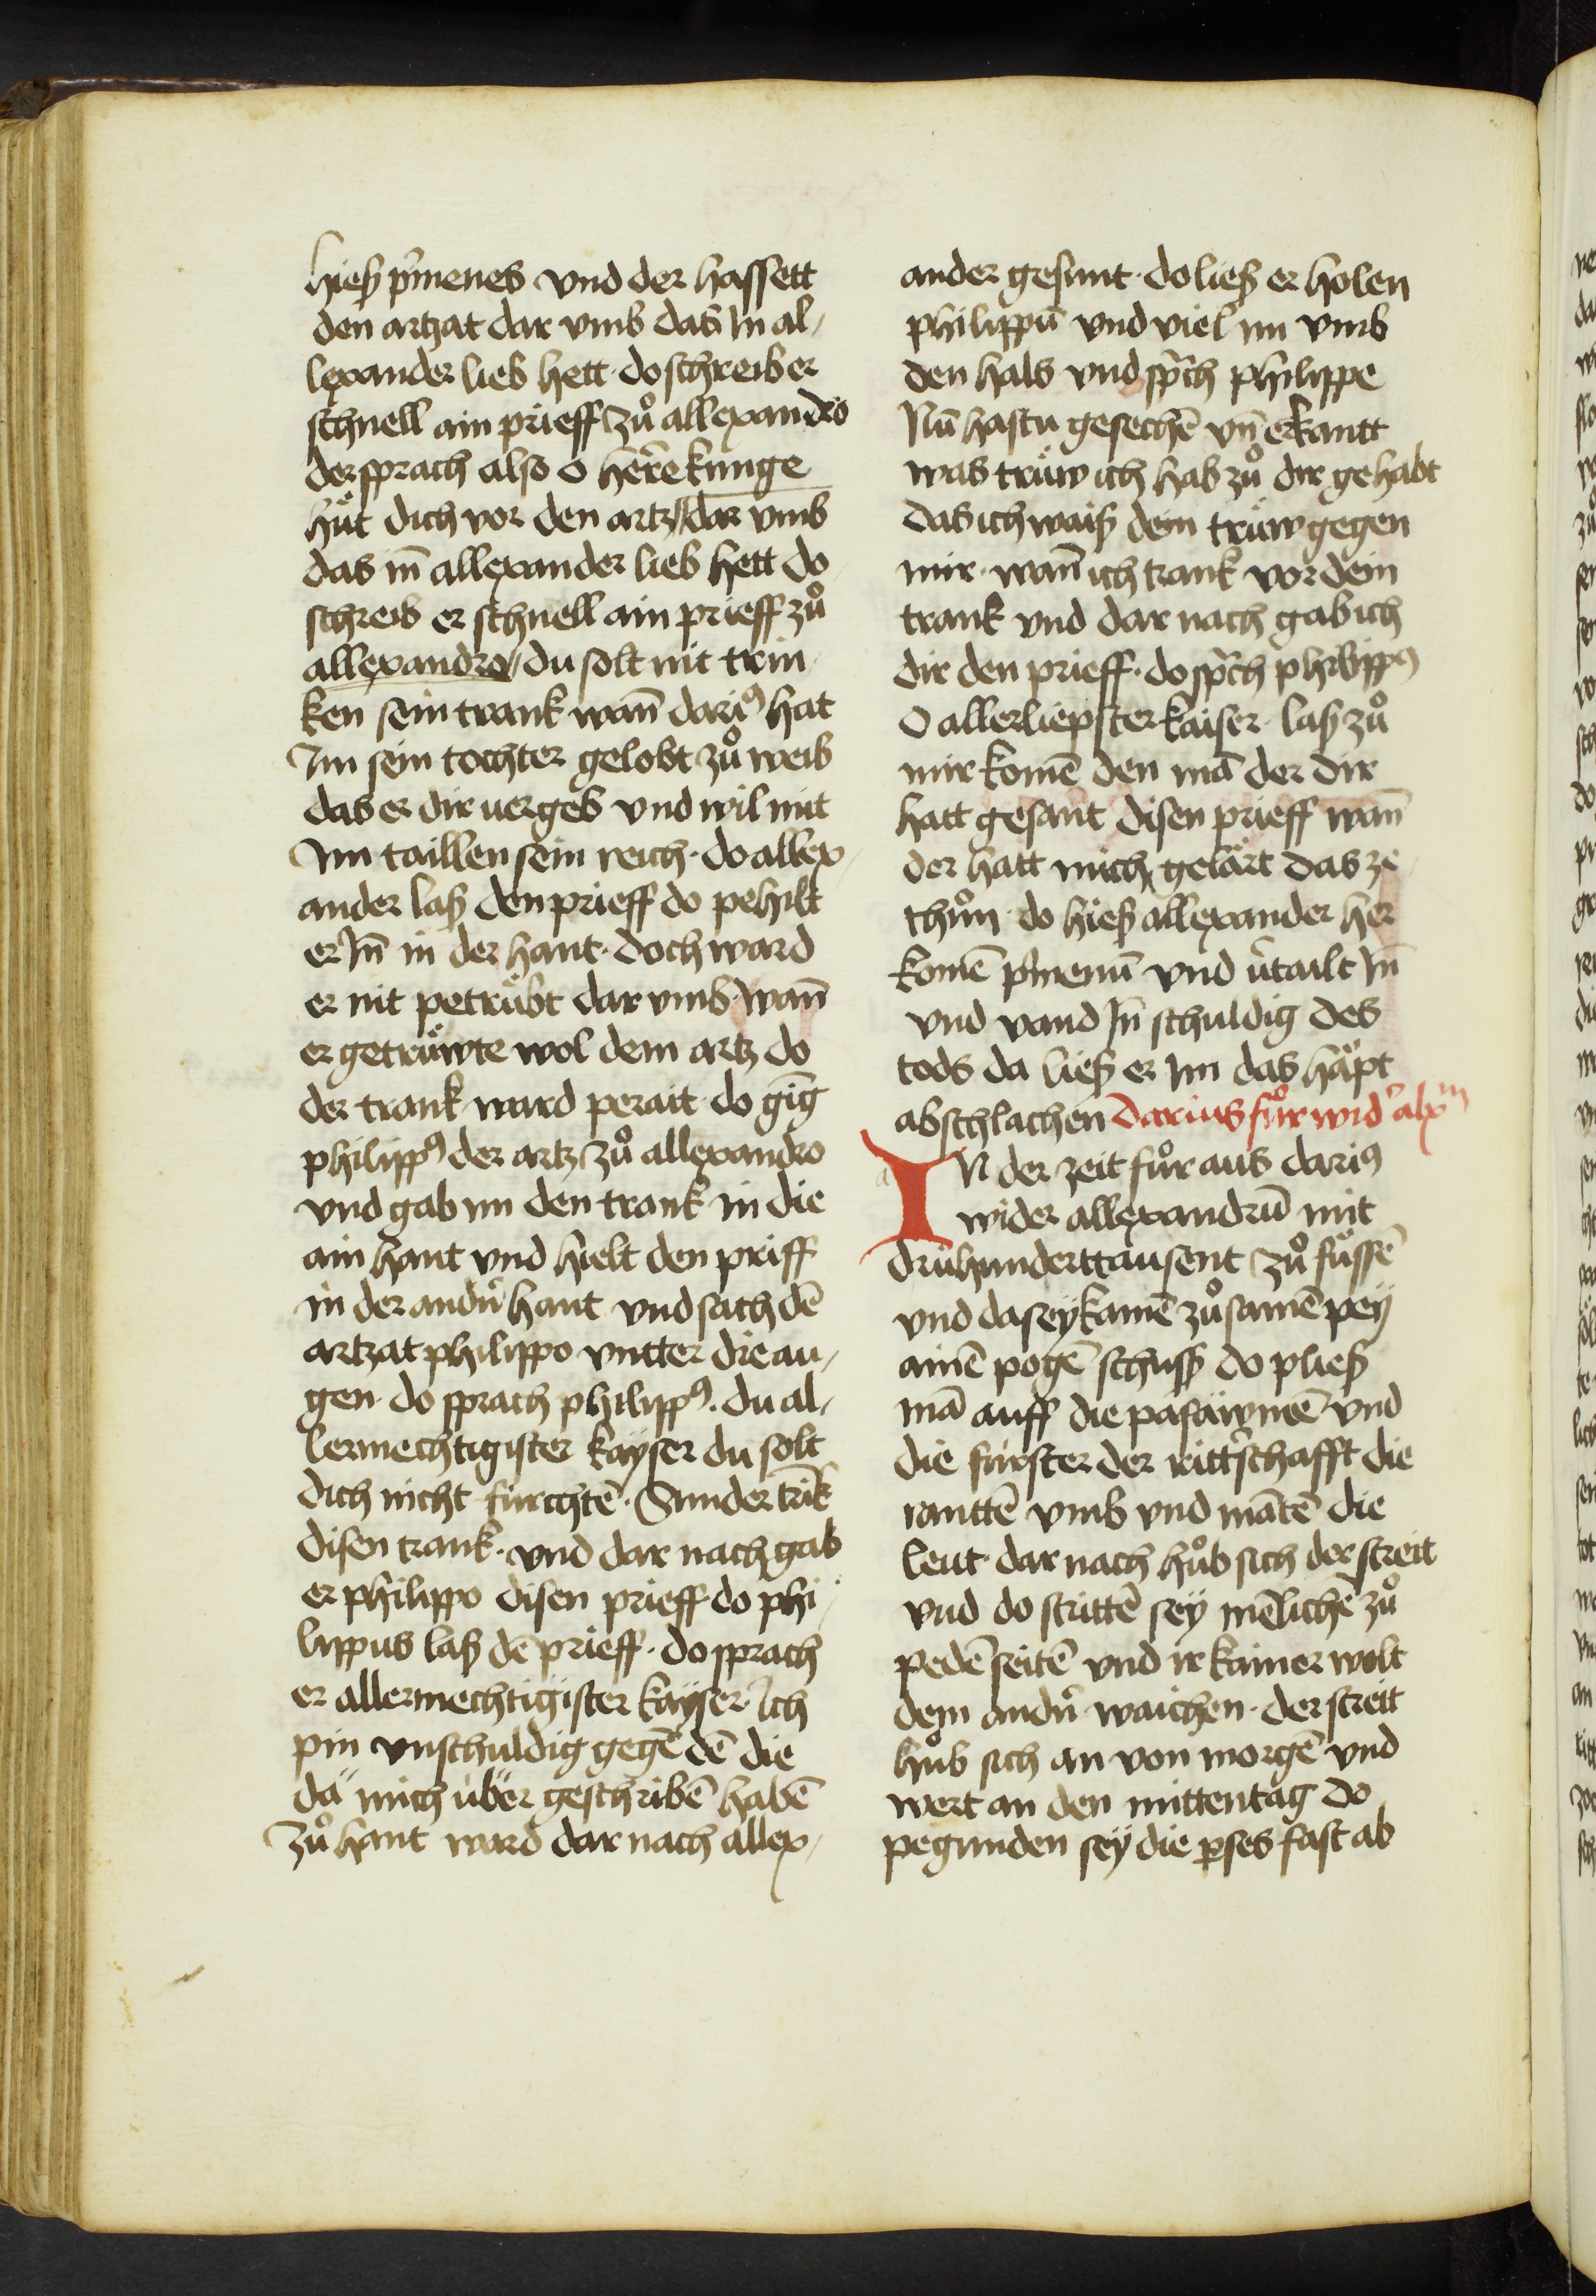 hieß p̄menes vnd der hassett
den artzat dar vmb das In al-
lexander lieb hett · do schreib er
schnell ain prieff zů allexandro
der sprach also o herre kunge
hüt dich vor den artz dar vmb
das in̄ allexander lieb hett do
schreib er schnell ain prieff zů
allexandro / du solt nit trin-
ken sein trank wan̄ dariꝰ hat
Im sein tochter gelobt zů weib
das er dir uergeb vnd wil mit
Im taillen sein reich · do allex-
ander laß den prieff do pehilt
er In̄ in der hant · doch ward
er nit petrübt dar vmb · wan̄
er getrüwte wol dem artz do
der trank ward perait · do gīg
philippꝰ der artz zů allexandro
vnd gab im den trank in die
ain hant vnd hielt den priff
in der andn̄ hant vnd sach dē
artzat philippo vntter die au-
gen · do sprach philippꝰ · du al-
lermechtigister kayser du solt
dich nicht fürchtē · Sunder trīk
disen trank · vnd dar nach gab
er philippo disen prieff · do phi-
lippus laß dē prieff · do sprach
er allermechtigister kayser · Ich
pin vnschuldig gegē dē die
da mich über geschribē habē
zů hant ward dar nach allex-
ander gesunt · do ließ er holen
philippū vnd viel im vmb
den hals vnd sp̄ch philippe
Nū hastu gesechē vn̄ erkantt
was trüw ich hab zů dir gehabt
das ich waiß dein trüw gegen
mir · wan̄ ich trank vor dein
trank vnd dar nach gab ich
dir den prieff · do sp̄ch philippꝰ
O allerliepster kaiser · laß zů
mir komē den mā der dir
hatt gesant disen prieff wan̄
der hatt mich gelärt das ze
thůn · do hieß allexander her
komē p̄menū vnd v̄tailt In̄
vnd vand In̄ schuldig des
tods da ließ er Im das häpt
abschlachen Darius fůr wid̄ alxm
IN der zeit fůr aus dariꝰ
wider allexandrū mit
drühunderttausent zů füssē
vnd da sey kamē zůsamē pey
ainē pogē schuss do pließ
mā auff die pasäwmē vnd
die fürster der ritt̄schafft die
ranttē vmb vnd mātē die
leut · dar nach hůb sich der streit
vnd do strittē sey mēlichē zů
pedē seitē vnd ir kainer wolt
dem andn̄ waichen · der streit
hůb sich an von morgē vnd
wert an den mittentag do
pegunden sey die p̄ses fast ab